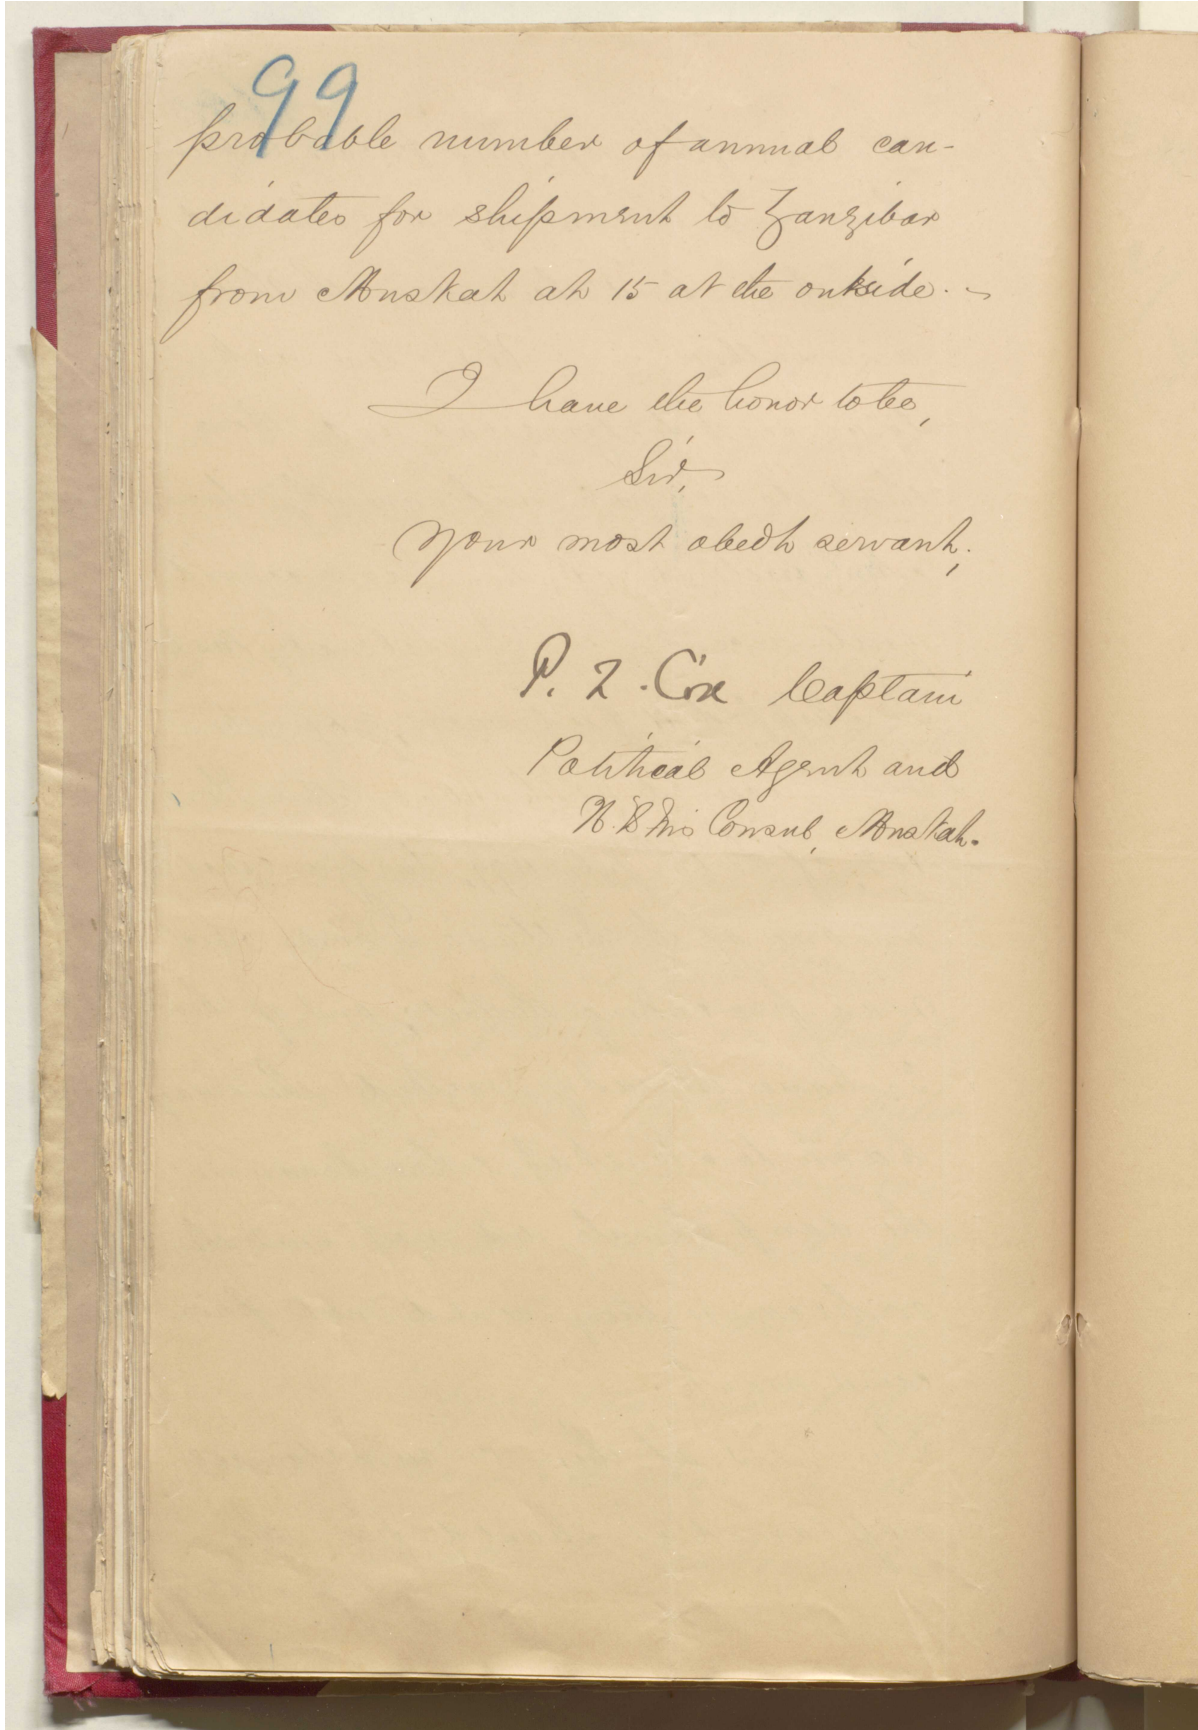 99
probable number of annual can-
didates for shipment to Zanzibar
from Muskat at 15 at the outside. -
I have the honor to be,
Sir,
Your most obedt servant,
P. Z. Cox Captain
Political Agent and
H. B M's Consul, Muskat.